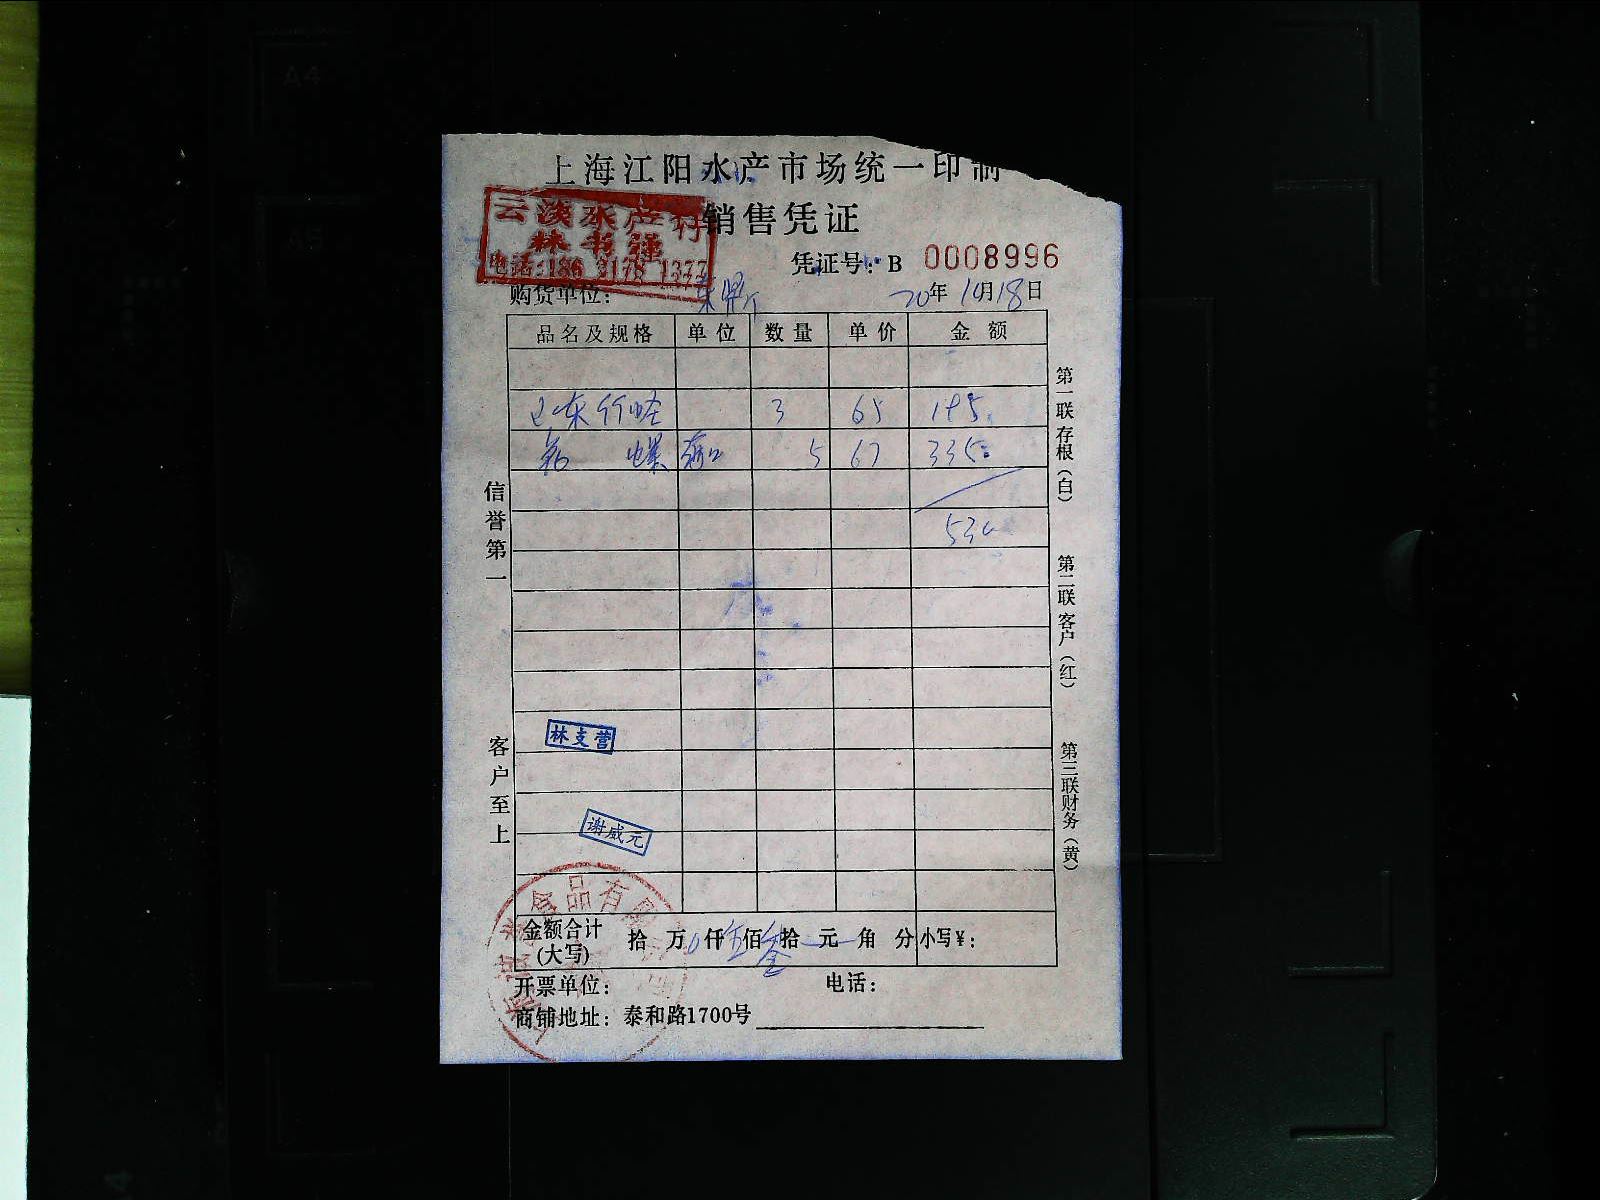 上海江阳水产市场统一印制
云淡水产行
林书强
电话:186 2178 1377
销售凭证
凭证号: B 0008996
购货单位:
20年10月18日
品名及规格 单位 数量 单价 金额
山东竹蛏 3 65 195
螺 5 67 335
530
信誉第一
客户至上
第一联存根(白)
第二联客户(红)
第三联财务(黄)
林支营
谢咸元
食品有限
金额合计(大写) 拾万0仟伍佰叁拾元角分 小写¥:
开票单位: 电话:
商铺地址: 泰和路1700号